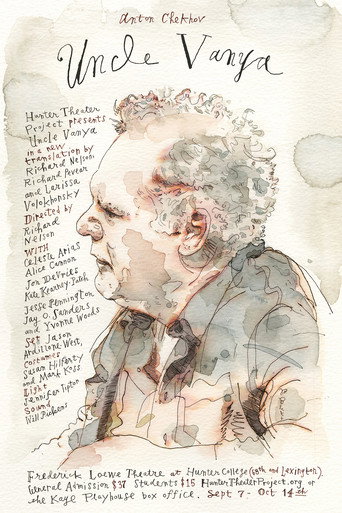 Anton Chekhov
Uncle Vanya
Hunter Theater
Project presents
Uncle Vanya
in a new
translation by
Richard Nelson,
Richard Pevear
and Larissa
Volokhonsky
Directed by
Richard
Nelson
WITH
Celeste Arias
Alice Cannon
Jon DeVries
Kate Kearney-Patch
Jesse Pennington
Jay O. Sanders
and Yvonne Woods
Set Jason
Ardizzone-West,
Costumes
Susan Hilferty
and Mark Koss
Light
Jennifer Tipton
Sound
Will Pickens
Frederick Loewe Theatre at Hunter College (68th and Lexington).
General Admission $37 Students $15 HunterTheaterProject.org or
the Kaye Playhouse box office. Sept 7 - Oct 14th